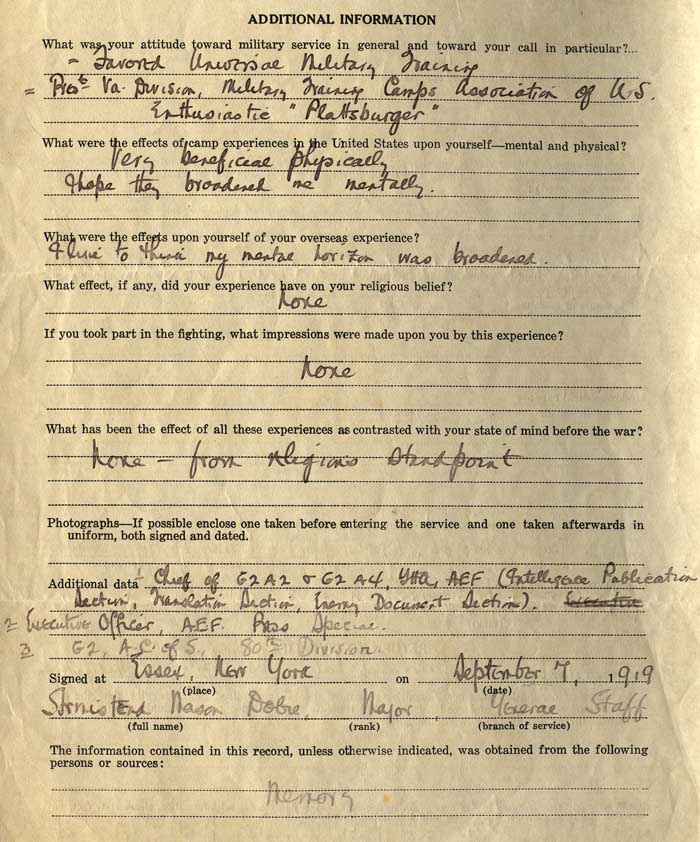 ADDITIONAL INFORMATION
What was your attitude toward military service in general and toward your call in particular?...
= Favored Universal Military Training
= Prest Va. Division, Military Training Camps Association of U.S.
Enthusiastic "Plattsburger"
What were the effects of camp experiences in the United States upon yourself—mental and physical?
Very beneficial physically
I hope they broadened me mentally.
What were the effects upon yourself of your overseas experience?
I like to think my mental horizon was broadened.
What effect, if any, did your experience have on your religious belief?
None
If you took part in the fighting, what impressions were made upon you by this experience?
None
What has been the effect of all these experiences as contrasted with your state of mind before the war?
None – from religious standpoint
Photographs—If possible enclose one taken before entering the service and one taken afterwards in
uniform, both signed and dated.
Additional data 1 Chief of G2A2 & G2A4, GHQ, AEF (Intelligence Publication
Section, Translation Section, Enemy Document Section). Executive
2 = Executive Officer, A.E.F. Pass Special.
3 G2, A.C. of S., 80th Division
Signed at Essex, New York on September 7, 1919
(place) (date)
Mason Dobie, Major, General Staff
(full name) (rank) (branch of service)
The information contained in this record, unless otherwise indicated, was obtained from the following
persons or sources:
Memory